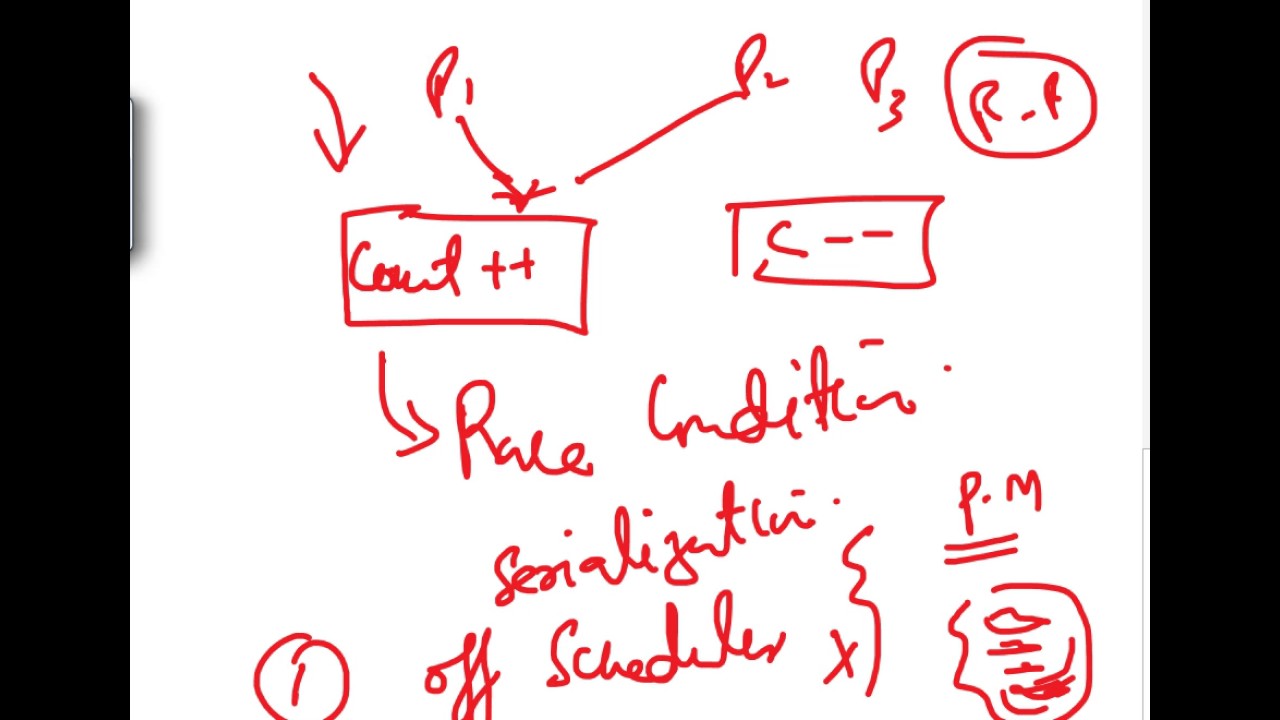 P1 P2 P3 R.P
Count ++ C --
Race Condition.
serialization.
P.M
① off Scheduler X